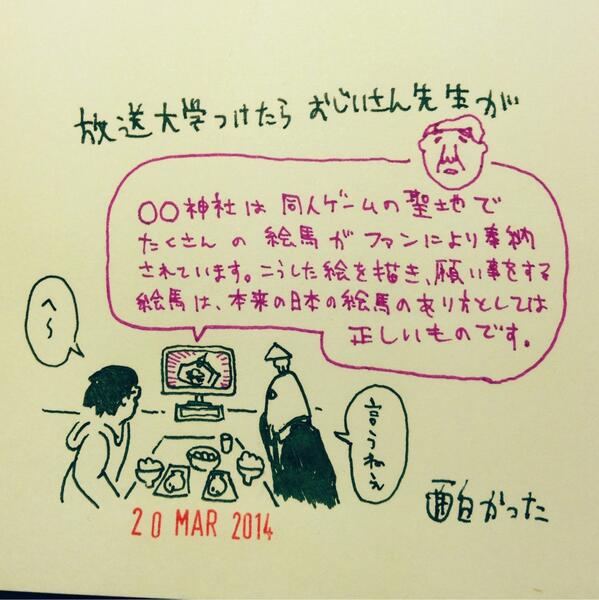 放送大学つけたら おじいさん先生が
○○神社は 同人ゲームの聖地で
たくさんの 絵馬が ファンにより奉納
されています。こうした絵を描き、願い事をする
絵馬は、本来の日本の絵馬のあり方としては
正しいものです。
へ〜
言うねえ
面白かった
20 MAR 2014